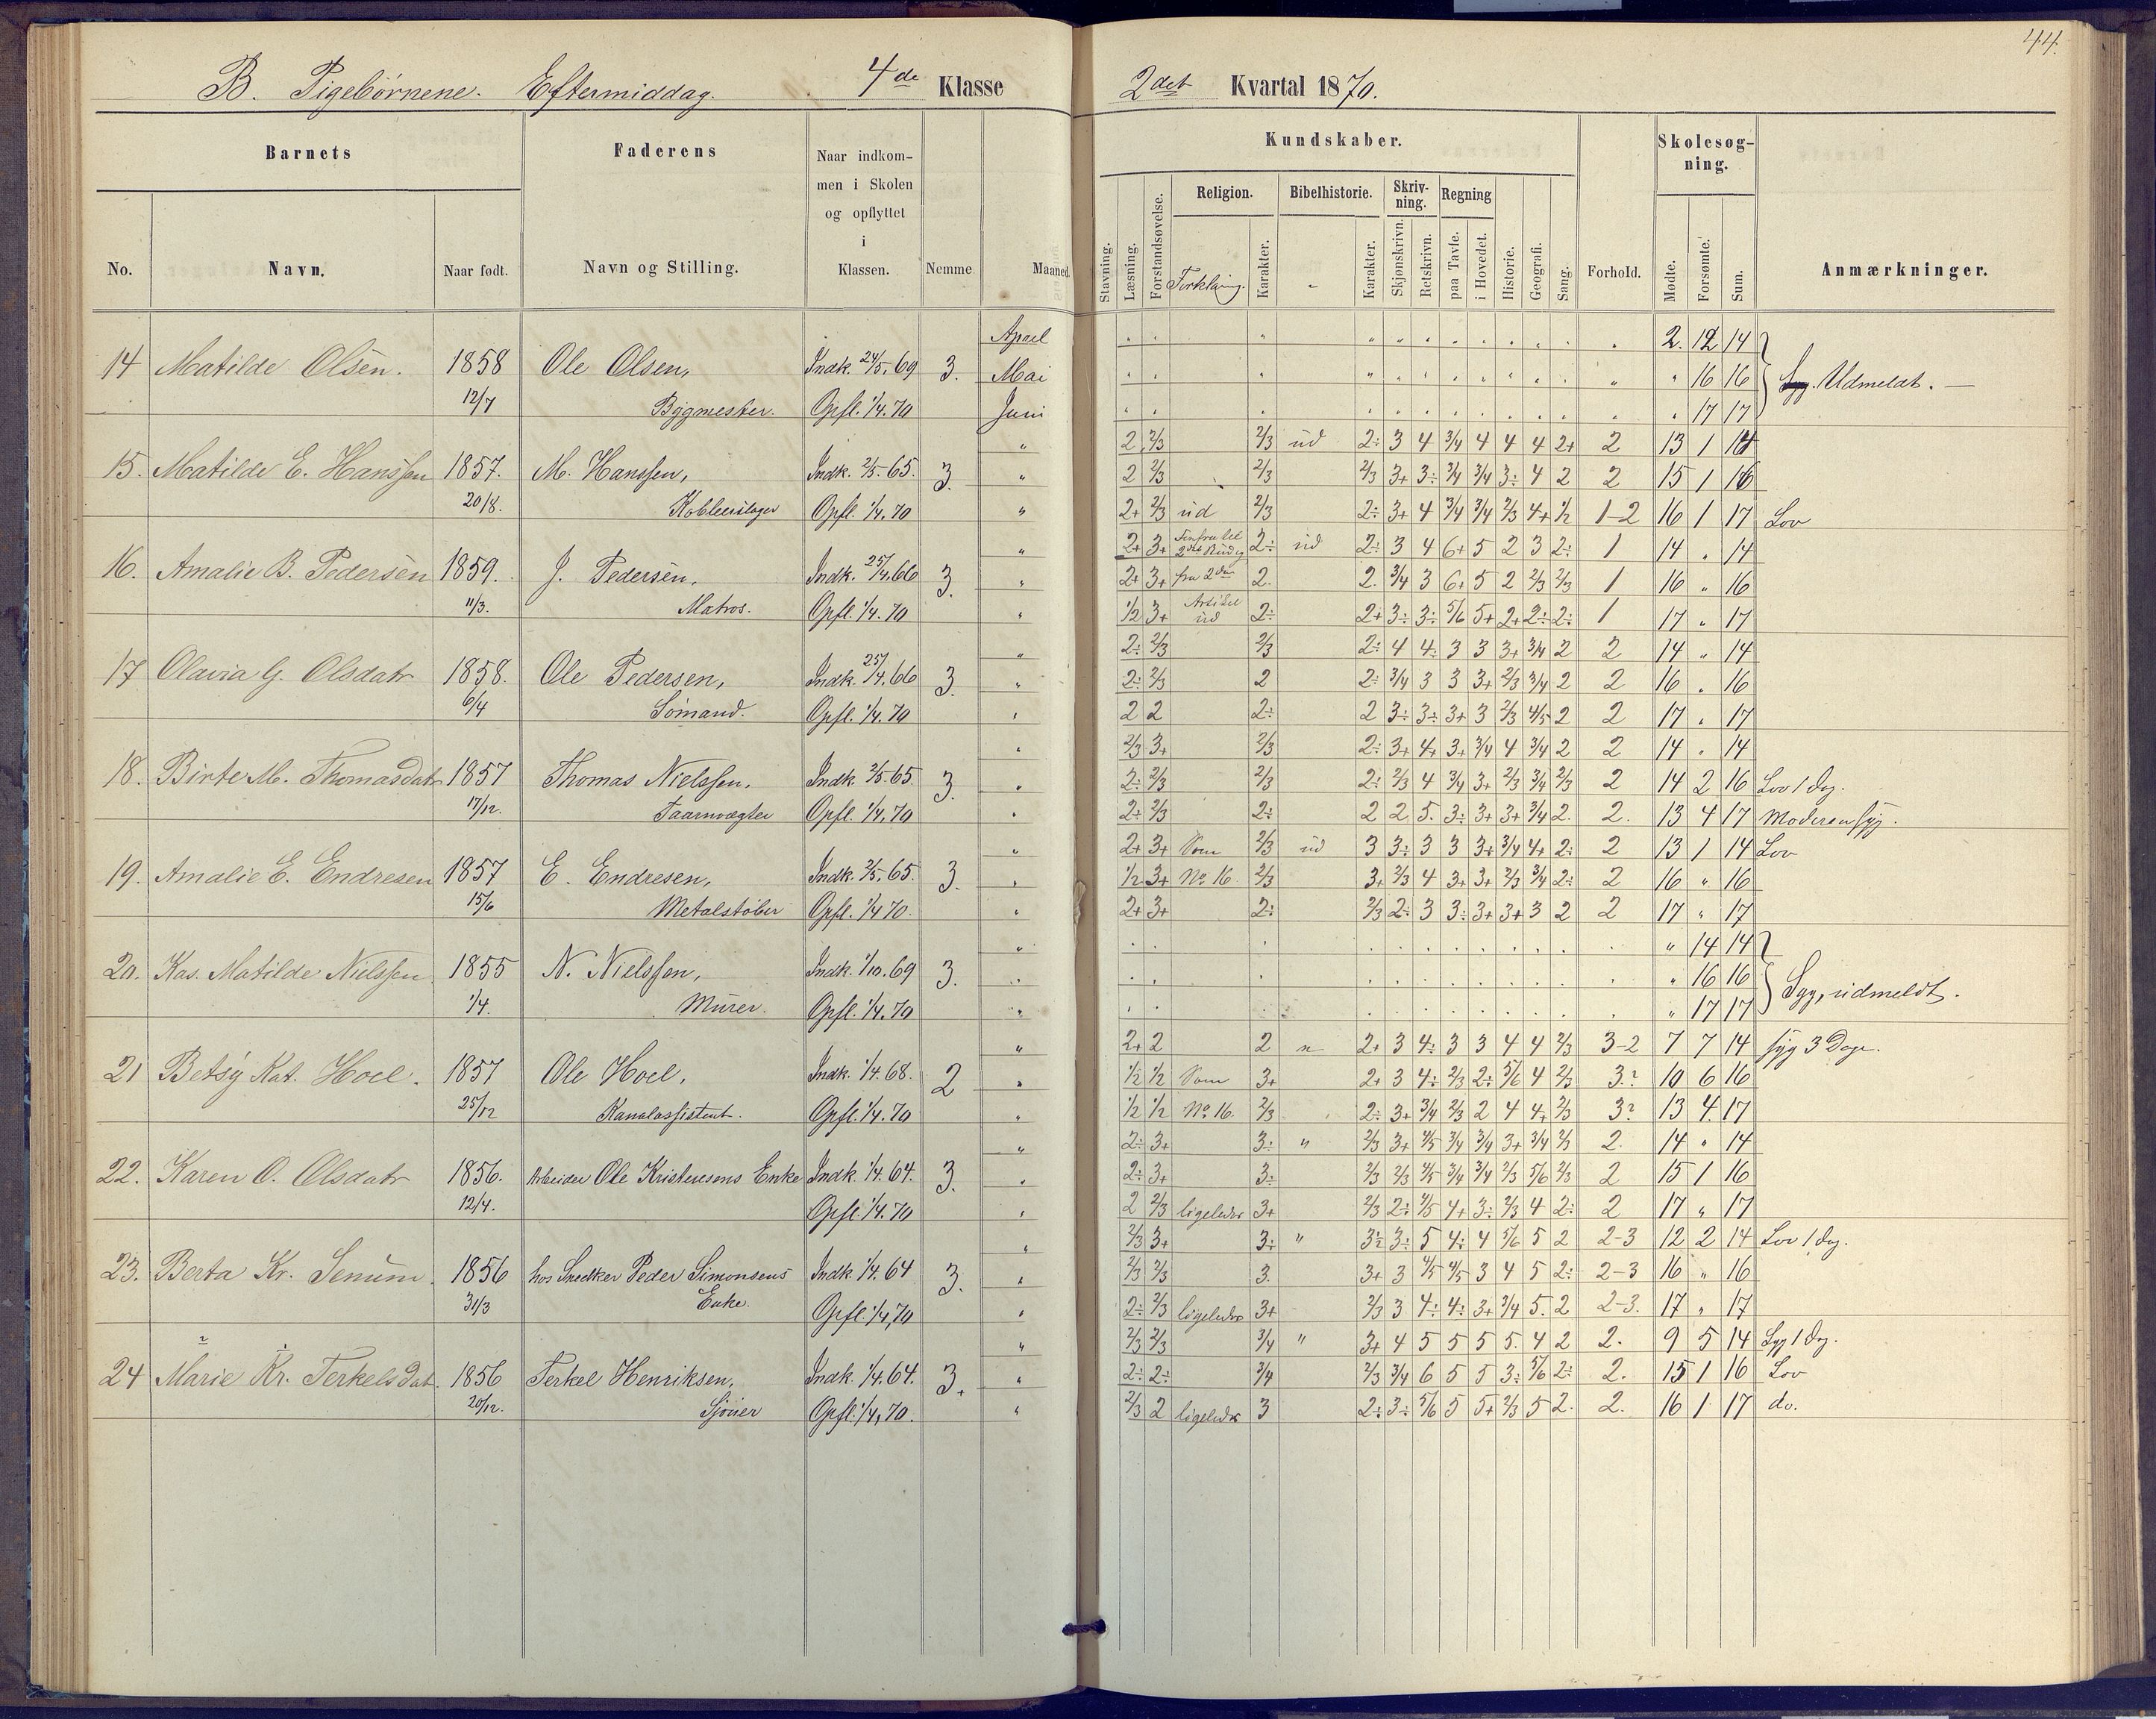 44.
B. Pigebørnene. Eftermiddag. 4de Klasse
2det Kvartal 1870.
Barnets
Faderens
Naar indkom-
men i Skolen
og opflyttet
i
Klassen.
No.
Navn.
Naar født.
Navn og Stilling.
Nemme
Maaned.
Kundskaber.
Religion.
Bibelhistorie.
Skriv-
ning.
Regning
Stavning.
Læsning.
Forstandsøvelse.
Forklaring.
Karakter.
Karakter.
Skjønskrivn.
Retskrivn.
paa Tavle.
i Hovedet.
Historie.
Geografi.
Sang.
Forhold.
Skolesøg-
ning.
Mødte.
Forsømte.
Sum.
Anmærkninger.
14 Matilde Olsen. 1858 Ole Olsen, Indk. 24/5. 69 3. April 2. 12 14
Mai " 16 16 Udmeldt.
12/7 Bygmester. Opfl. 1/4. 70 Juni " 17 17
" 2 2/3 2/3 ud 2÷ 3 4 3/4 4 4 4 2+ 2 13 1 14
15. Matilde E. Hanssen 1857. M. Hanssen, Indk. 2/5-65. 3. " 2 2/3 2/3 2/3 3+ 3÷ 3/4 3/4 3÷ 4 2 2 15 1 16
20/8. Opfl. 1/4. 70 " 2+ 2/3 ud 2/3 2÷ 3+ 4 3/4 3/4 2/3 4+ 1/2 1-2 16 1 17 Lov
" 2+ 3+ 2÷ ud 2÷ 3 4 6+ 5 2 3 2÷ 1 14 " 14
16. Amalie B. Pedersen 1859. J. Pedersen, Indk. 25/4. 66 3. " 2+ 3+ fra 2den 2. 2. 3/4 3 6+ 5 2 2/3 2/3 1 16 " 16
11/3. Matros. Opfl. 1/4. 70 " 1/2 3+ Artikel ud 2÷ 2+ 3÷ 3÷ 5/6 5+ 2+ 2÷ 2÷ 1 17 " 17
" 2÷ 2/3 2/3 2÷ 4 4÷ 3 3 3+ 3/4 2 2 14 " 14
17 Olavia G. Olsdatr 1858. Ole Pedersen, Indk. 25/4. 66 3. " 2÷ 2/3 2 2÷ 3/4 3 3 3+ 2/3 3/4 2 2 16 " 16
6/4 Sømand. Opfl. 1/4. 70 " 2 2 2÷ 2 3÷ 3÷ 3+ 3 2/3 4/5 2 2 17 " 17
" 2/3 3+ 2/3 2÷ 3+ 4+ 3+ 3/4 4 3/4 2 2 14 " 14
18. Birte M. Thomasdatr 1857 Thomas Nielssen, Indk. 2/5 65. 3. " 2÷ 2/3 2/3 2÷ 2/3 4 3/4 3+ 2/3 3/4 2/3 2 14 2 16 Lov 1 dag.
17/12. Taarnvægter Opfl. 1/4. 70 " 2÷ 2/3 2÷ 2 2 5. 3÷ 3+ 3+ 3/4 2. 2. 13 4 17 Moderen syg.
" 2+ 3+ Som 2/3 ud 3 3÷ 3 3 3+ 3/4 4+ 2÷ 2 13 1 14 Lov
19. Amalie E. Endresen 1857 E. Endresen, Indk. 2/5. 65. 3. " 1/2 3+ No 16. 2/3 3+ 2/3 4 3+ 3+ 2/3 3/4 2÷ 2 16 " 16
15/6 Metalstøber Opfl. 1/4 70. " 2+ 3+ 2÷ 2/3 2÷ 3 3÷ 3+ 3+ 3 2 2 17 " 17
" " 14 14
20. Kas. Matilde Nielssen. 1855 N. Nielssen, Indk. 1/10. 69 3. " " 16 16 Syg, udmeldt.
1/4. Murer. Opfl. 1/4. 70 " " 17 17
" 2+ 2 2 " 2+ 3 4÷ 3 3 4 4 2/3 3-2 7 7 14 syg 3 Dage.
21 Betsy Kat. Hoel. 1857 Ole Hoel, Indk. 1/4. 68. 2 " 1/2 1/2 Som 3+ 2+ 3 4÷ 2/3 2÷ 5/6 4 2/3 3.? 10 6 16
25/12 Kanalassistent. Opfl. 1/4. 70 " 1/2 1/2 No 16. 2/3 2÷ 3+ 3/4 2/3 2 4 4+ 2/3 3? 13 4. 17
" 2÷ 3+ 3÷ " 2/3 3+ 4/5 3/4 3/4 3+ 3/4 2/3 2. 14 " 14
22. Karen O. Olsdatr 1856. Arbeider Ole Kristensens Enke Indk. 1/4. 64. 3. " 2÷ 3+ 3÷ 2/3 2/3 4/5 3/4 3/4 2/3 5/6 2/3 2 15 1 16
12/4. Opfl. 1/4. 70 " 2 2/3 ligeledes 3+ 2/3 2÷ 4/5 4+ 3÷ 2/3 4 2÷ 2 17 " 17
" 2/3 3+ 3÷ " 3÷ 3÷ 5 4÷ 4 5/6 5 2 2-3 12 2 14 Lov 1 dag.
23. Berta Kr. Senum. 1856 hos Snedker Peder Simonsens Indk 1/4. 64 3. " 2/3 2/3 3. 3+ 3 4/5 4/5 3 4 5 2÷ 2-3 16 " 16
31/3 Enke. Opfl. 1/4, 70 " 2÷ 2/3 ligeledes 3+ 2/3 3 4÷ 4÷ 3+ 3/4 5. 2 2-3. 17 " 17
" 2/3 2/3 3/4 " 3+ 4 5 5 5 5. 4 2 2. 9 5 14 Syg 1 dag.
24 Marie Kr. Terkelsdat. 1856 Terkel Henriksen, Indk. 1/4. 64. 3. " 2÷ 2÷ 3/4 2/3 3/4 6 5 5 3÷ 5/6 2÷ 2. 15 1 16 Lov
20/12. Sjouer Opfl. 1/4, 70. " 2/3 2 ligeledes 3 2÷ 3÷ 5/6 5 5+ 2/3 5 2. 2. 16 1 17 do.